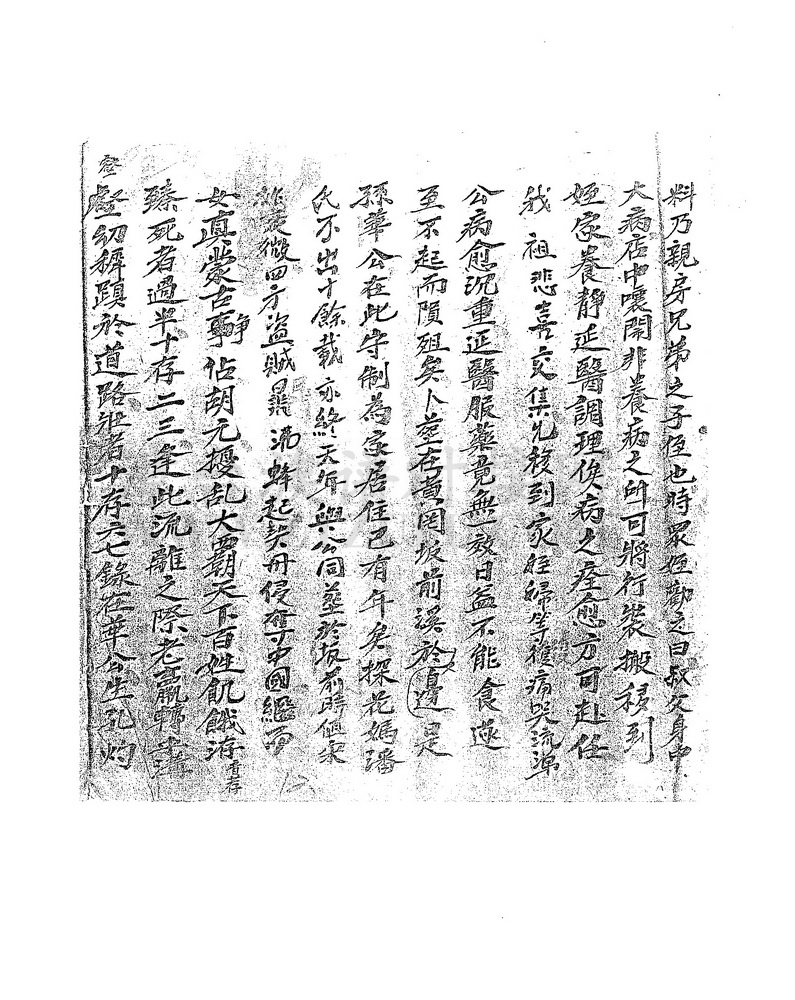 料乃親房兄弟之子侄也時眾姪勸之曰叔父身中
大病店中嚷鬧非養病之所可將行裝搬移到
姪家養靜延醫調理俟病之痊愈方可赴任
我祖悲喜交集允移到家姪婦等獲痛哭流淚
公病愈沉重延醫服藥竟無一效日益不能食遂
至不起而隕殂矣卜塟在黄岡坡前溪於邊是
孫華公在此守制為家居住已有年矣探花媽潘
氏不出十餘載亦終天年與公同塟於坂前時值宋
衰微四方盜賊 蜂起契丹侵奪中國繼而
女真蒙古爭佔胡元擾乱大霸天下百姓飢餓洊
臻死者過半十存二三逢此流離之際老羸轉 溝
壑幼稺蹎於道路壯者十存六七錄在華公生孔灼